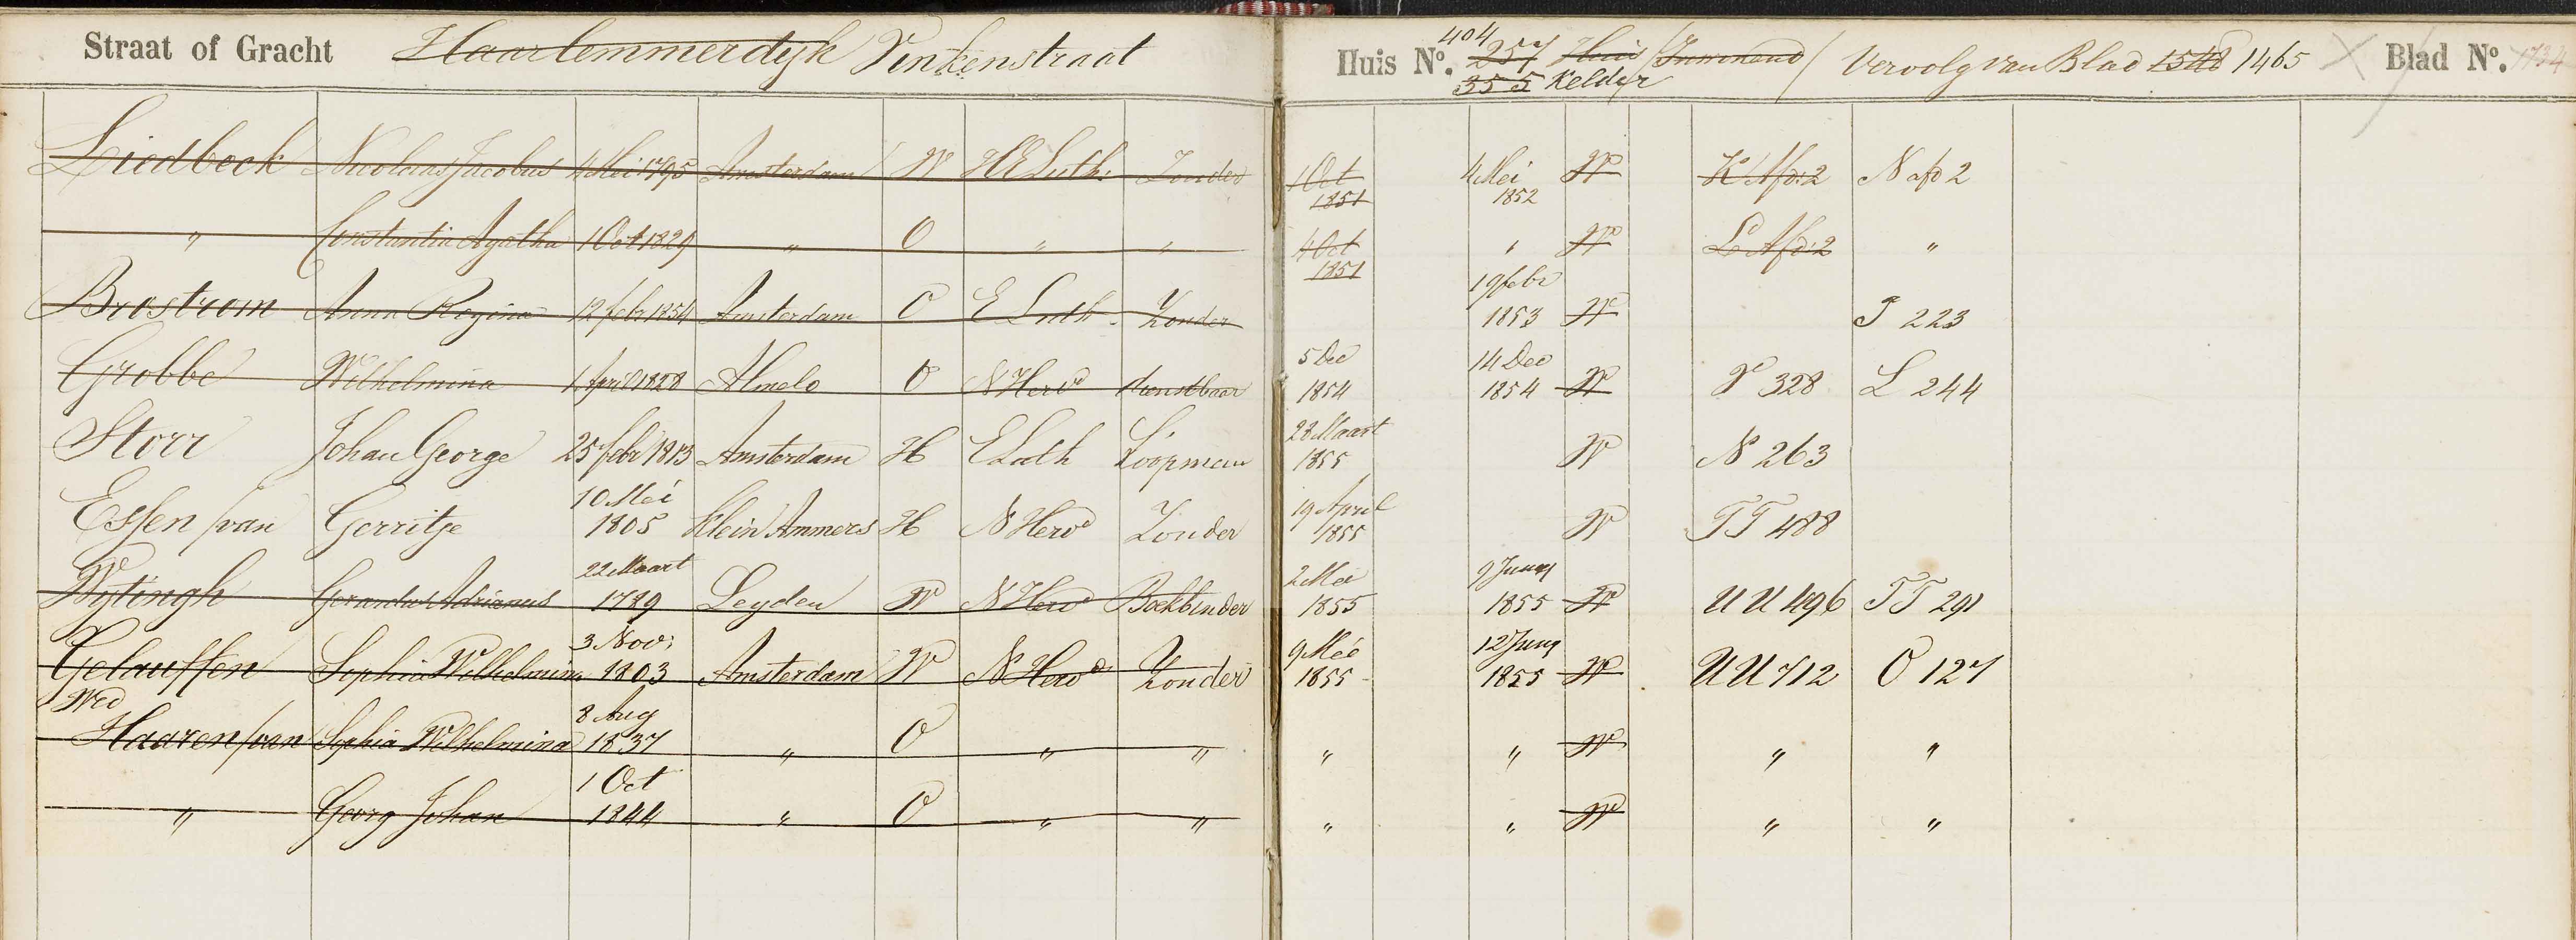 Straat of Gracht Haarlemmerdyk Vinkenstraat Huis No. 404 257 Huis / / Vervolg van Blad 1548 1465 Blad No. 1734
355 Kelder
Liedbeck Nicolaas Jacobus 4 Mei 1795 Amsterdam W HE Luth: Zonder 1 Oct 1851 4 Mei 1852 W K Afd: 2 N afd 2
" Constantia Agatha 1 Oct 1829 " O " " 4 Oct 1851 " W L Afd: 2 "
Brostrom Anna Regina 12 febr 1854 Amsterdam O E Luth. Zonder 19 febr 1853 W J 223
Grobbe Wilhelmina 1 April 1828 Almelo O N Hervd dienstbaar 5 Dec 1854 14 Dec 1854 W P 328 L 244
Storr Johan George 25 febr 1813 Amsterdam H E Luth Loopman 28 Maart 1855 W N 263
Essen /van Gerritje 10 Mei 1805 Klein Ammers H N Hervd Zonder 19 April 1855 W TT 488
Wytingh Gerardus Adrianus 22 Maart 1789 Leyden W N Hervd Boekbinder 2 Mei 1855 9 Juny 1855 W UU 496 TT 291
Gelauffen Sophia Wilhelmina 3 Nov: 1803 Amsterdam W N Hervd Zonder 9 Mei 1855 12 Juny 1855 W UU 712 O 127
Wed
Haaren /van Sophia Wilhelmina 8 Aug 1837 " O " " " " W " "
" Georg Johan 1 Oct 1844 " O " " " " W " "